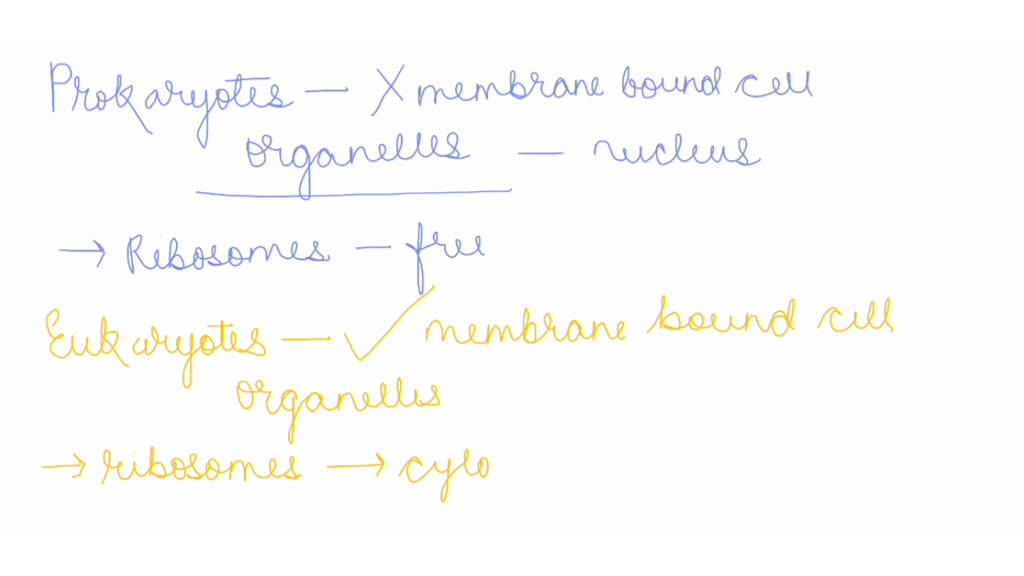 Prokaryotes — X membrane bound cell
organelles — nucleus
→ Ribosomes — free
Eukaryotes — ✓ membrane bound cell
organelles
→ ribosomes → cylo